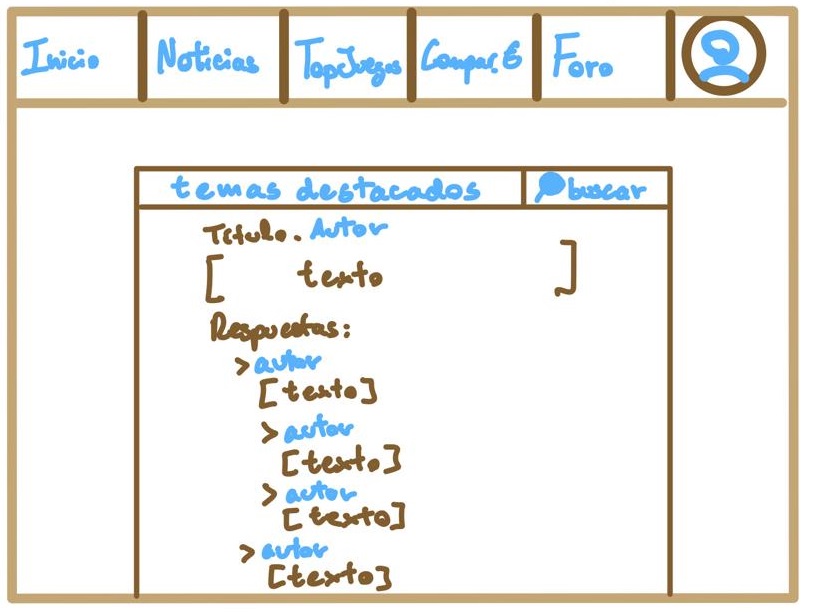 Inicio Noticias TopJuegos Compar.E Foro
temas destacados buscar
Título. Autor
[ texto ]
Respuestas:
> autor
[texto]
> autor
[texto]
> autor
[texto]
> autor
[texto]